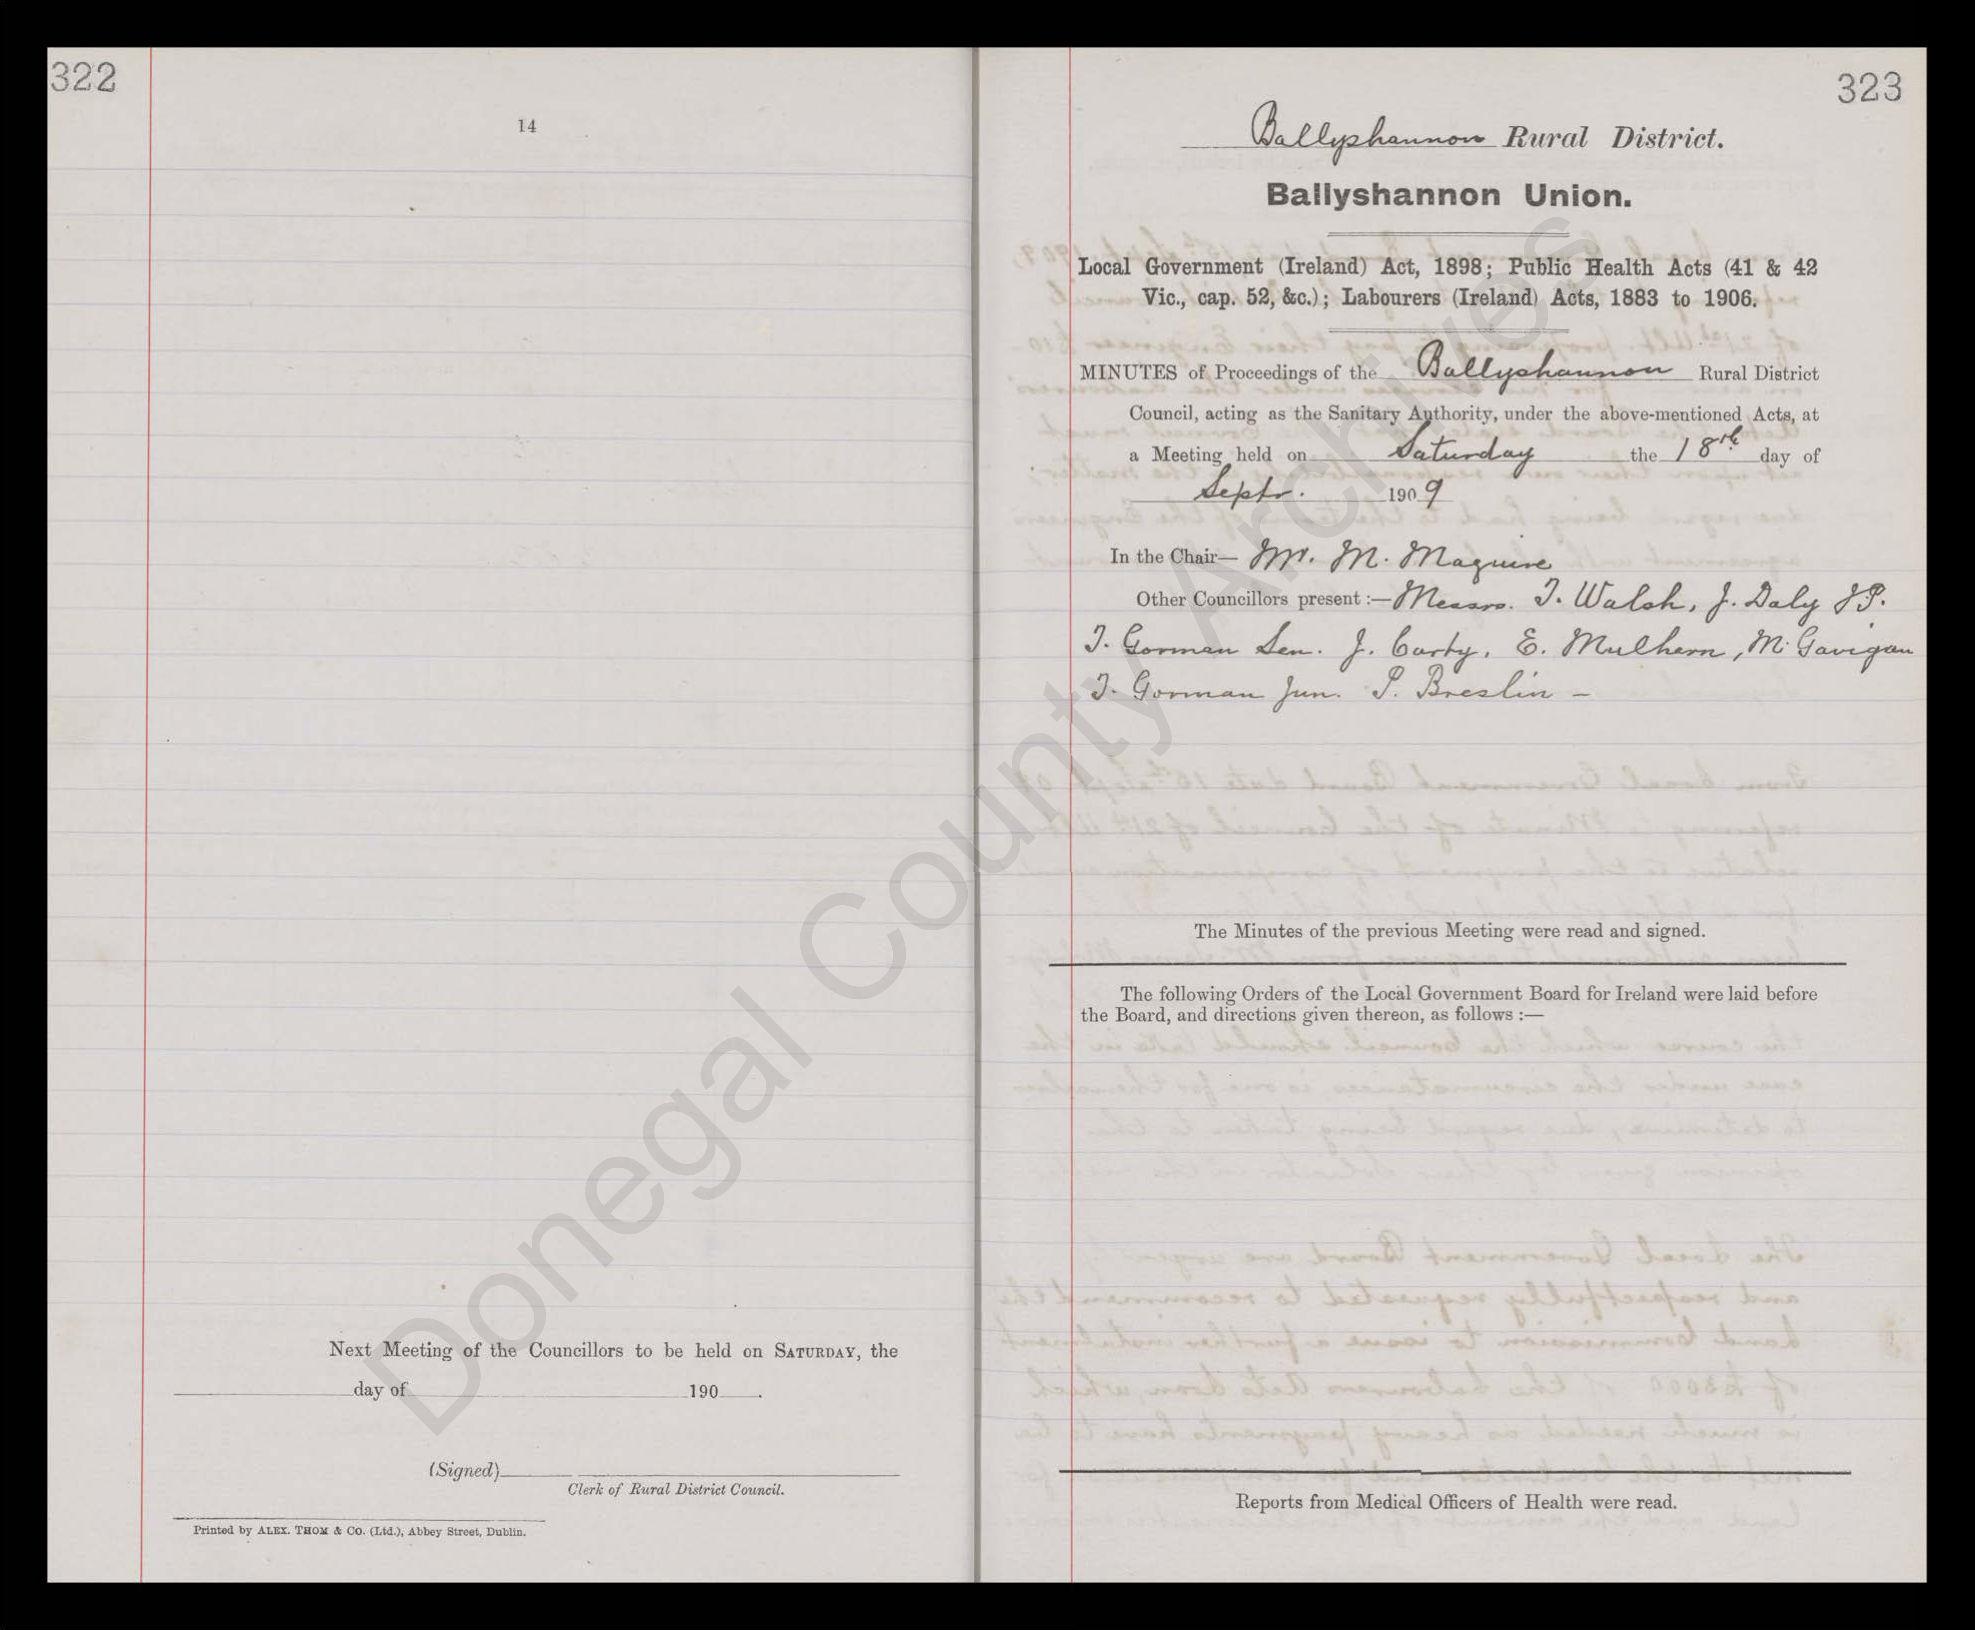 322
14
Next Meeting of the Councillors to be held on SATURDAY, the
day of 190 .
(Signed)
Clerk of Rural District Council.
Printed by ALEX. THOM & CO. (Ltd.), Abbey Street, Dublin.
323
Ballyshannon Rural District.
Ballyshannon Union.
Local Government (Ireland) Act, 1898; Public Health Acts (41 & 42
Vic., cap. 52, &c.); Labourers (Ireland) Acts, 1883 to 1906.
MINUTES of Proceedings of the Ballyshannon Rural District
Council, acting as the Sanitary Authority, under the above-mentioned Acts, at
a Meeting held on Saturday the 18th day of
Septr. 1909
In the Chair— Mr. M. Maguire
Other Councillors present :— Messrs. T. Walsh, J. Daly J.P.
T. Gorman Sen. J. Carty, E. Mulhern, M. Gavigan
T. Gorman Jun. P. Breslin –
The Minutes of the previous Meeting were read and signed.
The following Orders of the Local Government Board for Ireland were laid before
the Board, and directions given thereon, as follows :—
Reports from Medical Officers of Health were read.
Donegal County Archives